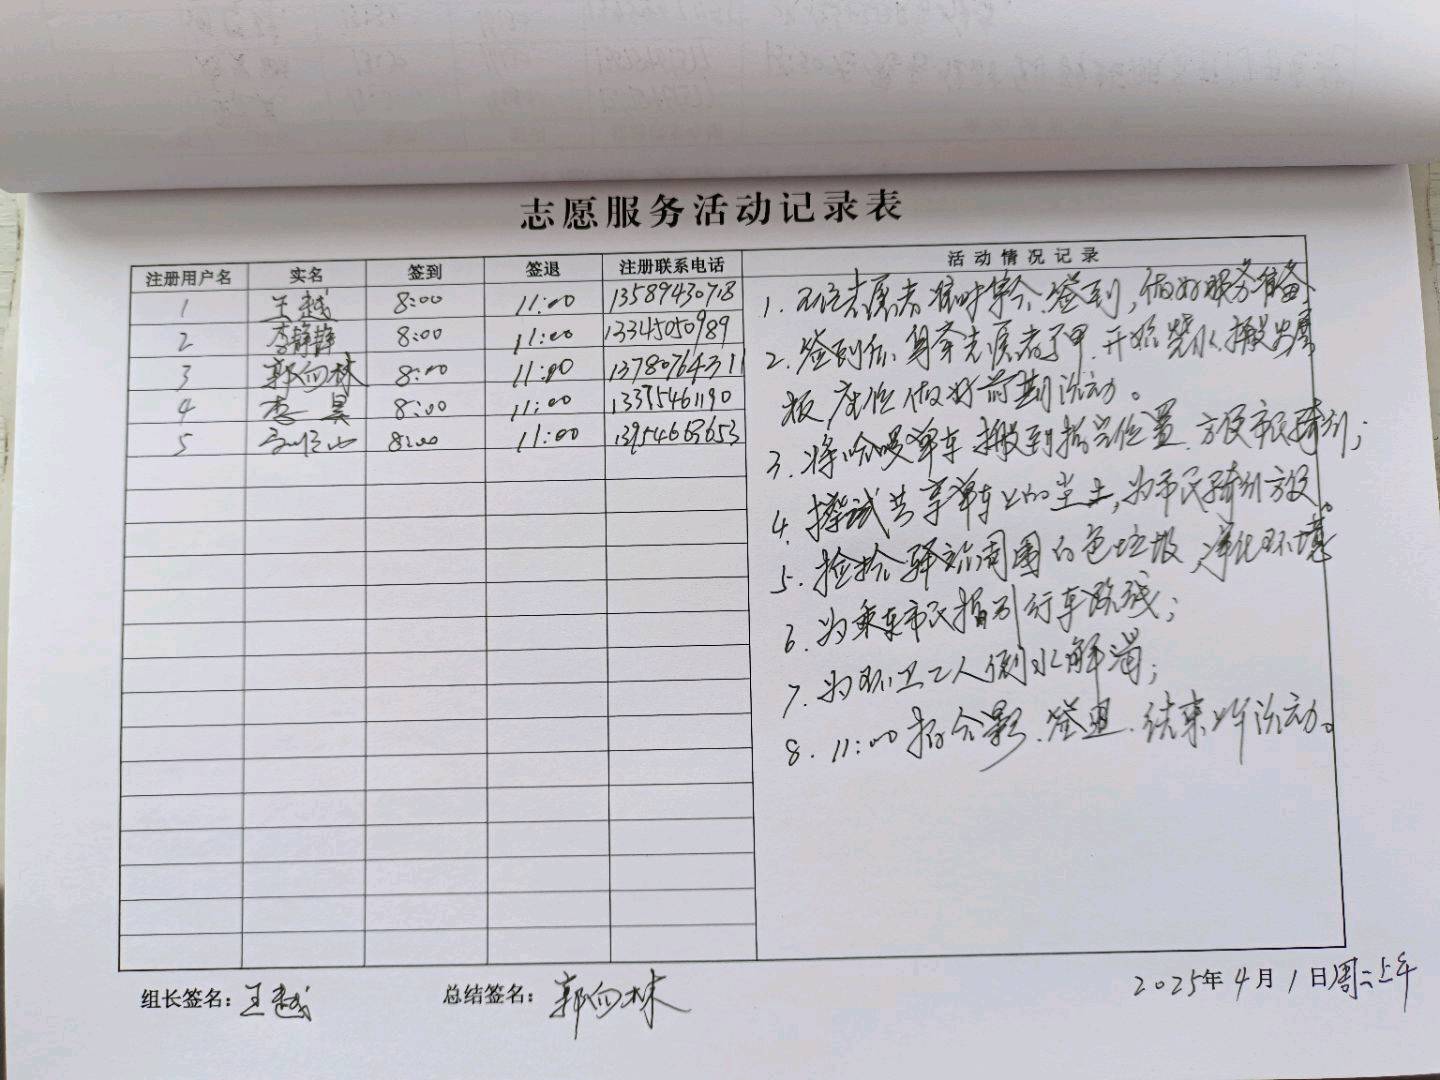 志愿服务活动记录表
注册用户名 实名 签到 签退 注册联系电话 活动情况记录
1 王越 8:00 11:00 13589430718
2 李静静 8:00 11:00 13345050989
3 郭向林 8:00 11:00 13780764311
4 李昊 8:00 11:00 13395461190
5 8:00 11:00 13954663653
1. 五位志愿者准时集合、签到,做好服务准备
2. 签到后,身穿志愿者马甲、开始烧水、搬出展
板、座位做好前期活动。
3. 将哈啰单车搬到指定位置,方便市民骑行;
4. 擦拭共享单车上的尘土,为市民骑行方便。
5. 捡拾驿站周围白色垃圾,净化环境
6. 为乘车市民指引行车路线;
7. 为环卫工人倒水解渴;
8. 11:00 拍合影、签退、结束上午活动。
组长签名:王越 总结签名:郭向林 2025年4月1日周二上午